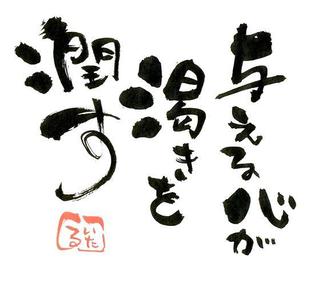 与える心が
渇きを
潤す
いたる